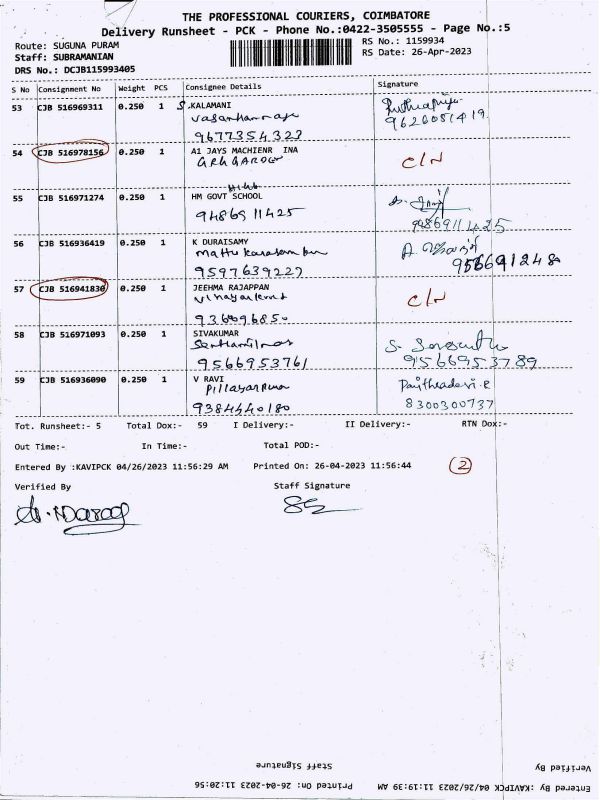 THE PROFESSIONAL COURIERS, COIMBATORE
Delivery Runsheet - PCK - Phone No.:0422-3505555 - Page No.:5
Route: SUGUNA PURAM
RS No.: 1159934
Staff: SUBRAMANIAN
RS Date: 26-Apr-2023
DRS No.: DCJB115993405
S No Consignment No Weight PCS Consignee Details Signature
53 CJB 516969311 0.250 1 S.KALAMANI
9677354323
54 CJB 516978156 0.250 1 A1 JAYS MACHIENR INA
C/N
55 CJB 516971274 0.250 1 HM GOVT SCHOOL
9486911425
9486911425
56 CJB 516936419 0.250 1 K DURAISAMY
9597639227
9566912480
57 CJB 516941830 0.250 1 JEEHMA RAJAPPAN
C/N
9360096850
58 CJB 516971093 0.250 1 SIVAKUMAR
9566953761 9566953789
59 CJB 516936090 0.250 1 V RAVI
9384440180 8300300737
Tot. Runsheet:- 5 Total Dox:- 59 I Delivery:- II Delivery:- RTN Dox:-
Out Time:- In Time:- Total POD:-
Entered By :KAVIPCK 04/26/2023 11:56:29 AM Printed On: 26-04-2023 11:56:44 2
Verified By Staff Signature
Staff Signature Verified By
Entered By :KAVIPCK 04/26/2023 11:19:39 AM Printed On: 26-04-2023 11:20:56